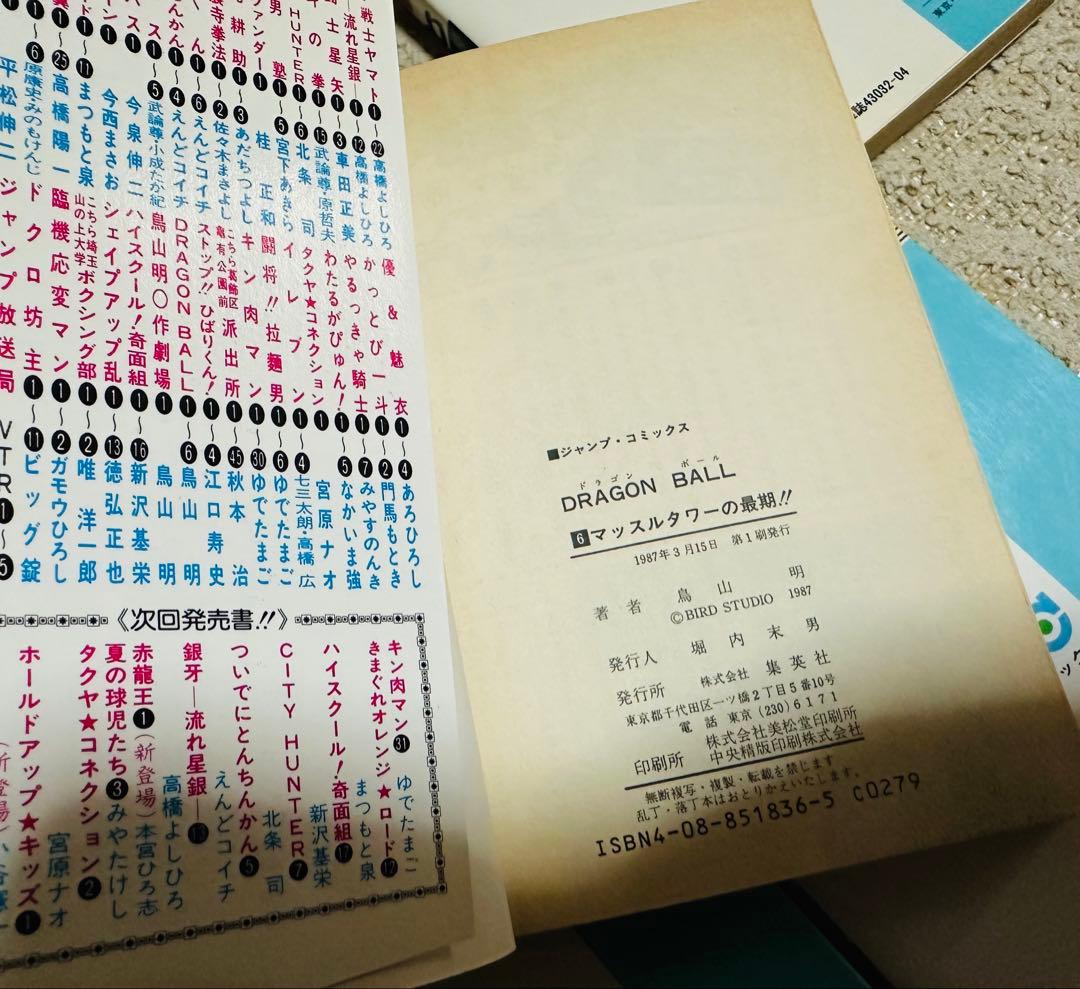 東京
誌43032-04
戦士ヤマト❶〜㉒高橋よしひろ
流れ星銀❶〜⑫高橋よしひろ
士星矢❶〜❸車田正美
の拳❶〜⑮武論尊・原哲夫
HUNTER❶〜❻北条司
塾❶〜❺宮下あきら
ァンダー❶桂正和
耕助❶〜❸あだちつよし
寺拳法❶〜❷佐々木まさよし
❶〜❻えんどコイチ
んかん❶〜❹えんどコイチ
ス❶〜❺武論尊・小成たか紀
❶今泉伸二
イン❶今西まさお
ド❶〜⑪まつもと泉
翼❶〜㉕高橋陽一
❶〜❻原康史・みのもけんじ
平松伸二
優&魅衣❶〜❹あろひろし
かっとび一斗❶〜❷門馬もとき
やるっきゃ騎士❶〜❼みやすのんき
わたるがぴゅん!❶〜❺なかいま強
タクヤ★コネクション❶宮原ナオ
イレブン❶〜❹七三太朗・高橋広
闘将!!拉麵男❶〜❻ゆでたまご
キン肉マン❶〜㉚ゆでたまご
こちら葛飾区亀有公園前派出所❶〜㊺秋本治
ストップ!!ひばりくん!❶〜❹江口寿史
DRAGON BALL❶〜❻鳥山明
鳥山明○作劇場❶鳥山明
ハイスクール!奇面組❶〜⑯新沢基栄
シェイプアップ乱❶〜⑬徳弘正也
こちら埼玉山の上大学ボクシング部❶〜❷唯洋一郎
臨機応変マン❶〜❷ガモウひろし
ドクロ坊主❶〜⑪ビッグ錠
ジャンプ放送局VTR❶〜❺
《次回発売書!!》
キン肉マン㉛ゆでたまご
きまぐれオレンジ★ロード⑫まつもと泉
ハイスクール!奇面組⑰新沢基栄
CITY HUNTER❼北条司
ついでにとんちんかん❺えんどコイチ
銀牙―流れ星銀―⑬高橋よしひろ
赤龍王❶(新登場)本宮ひろ志
夏の球児たち❸みやたけし
タクヤ★コネクション❷宮原ナオ
ホールドアップ★キッズ❶
■ジャンプ・コミックス
ドラゴン ボール
DRAGON BALL
6マッスルタワーの最期!!
1987年3月15日 第1刷発行
著者 鳥山 明
©BIRD STUDIO 1987
発行人 堀内末男
発行所 株式会社 集英社
東京都千代田区一ツ橋2丁目5番10号
電話 東京(230)6171
印刷所 株式会社美松堂印刷所
中央精版印刷株式会社
無断複写・複製・転載を禁じます
乱丁・落丁本はおとりかえいたします。
ISBN4-08-851836-5 C0279